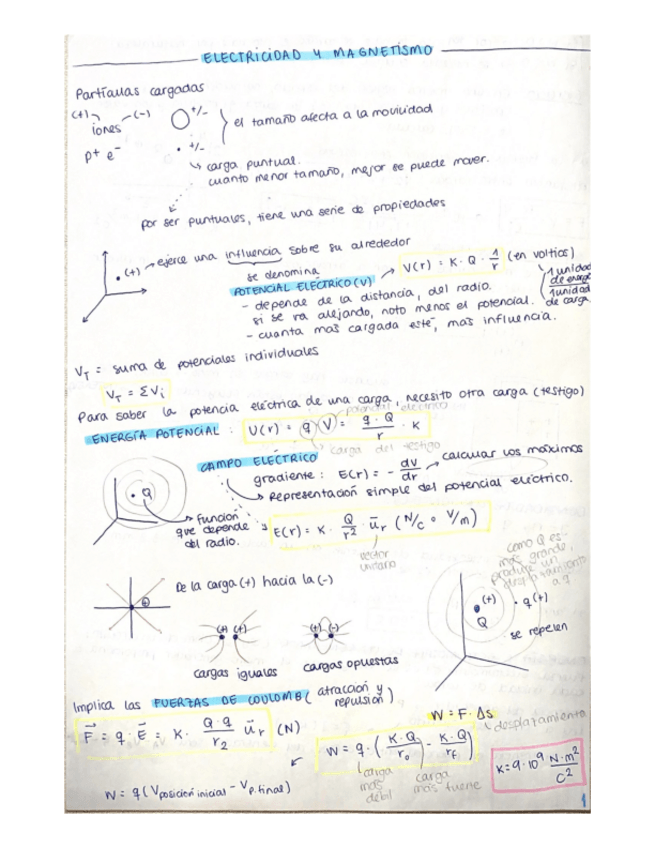 ELECTRICIDAD Y MAGNETISMO
Partículas cargadas
(+) (-)
iones
+/-
el tamaño afecta a la movilidad
p+ e-
+/-
carga puntual.
cuanto menor tamaño, mejor se puede mover.
por ser puntuales, tiene una serie de propiedades
(+) ejerce una influencia sobre su alrededor
se denomina
POTENCIAL ELÉCTRICO (V) → V(r) = K · Q · 1/r (en voltios)
1 unidad de energía / 1 unidad de carga
- depende de la distancia, del radio.
si se va alejando, noto menos el potencial.
- cuanta mas cargada esté, mas influencia.
V_T = suma de potenciales individuales
V_T = ΣV_i
Para saber la potencia eléctrica de una carga, necesito otra carga (testigo)
potencial eléctrico
ENERGÍA POTENCIAL : U(r) = q V = q · Q / r · K
carga del testigo
CAMPO ELÉCTRICO
gradiente : E(r) = - dV/dr → calcular los máximos
Representación simple del potencial eléctrico.
Q
Función que depende del radio.
E(r) = K · Q/r² · ū_r (N/C o V/m)
vector unitario
como Q es mas grande, produce un desplazamiento a q
De la carga (+) hacia la (-)
(+) Q
q (+)
se repelen
(+) (+)
(+) (-)
cargas iguales
cargas opuestas
Implica las FUERZAS DE COULOMB (atracción y repulsión)
F⃗ = q · E⃗ = K · Q · q / r₂ ū_r (N)
W = F · Δs
desplazamiento
W = q · (K·Q/r₀ - K·Q/r_f)
carga más débil
carga más fuerte
K = 9·10⁹ N·m²/C²
W = q (V posición inicial - V p. final)
1